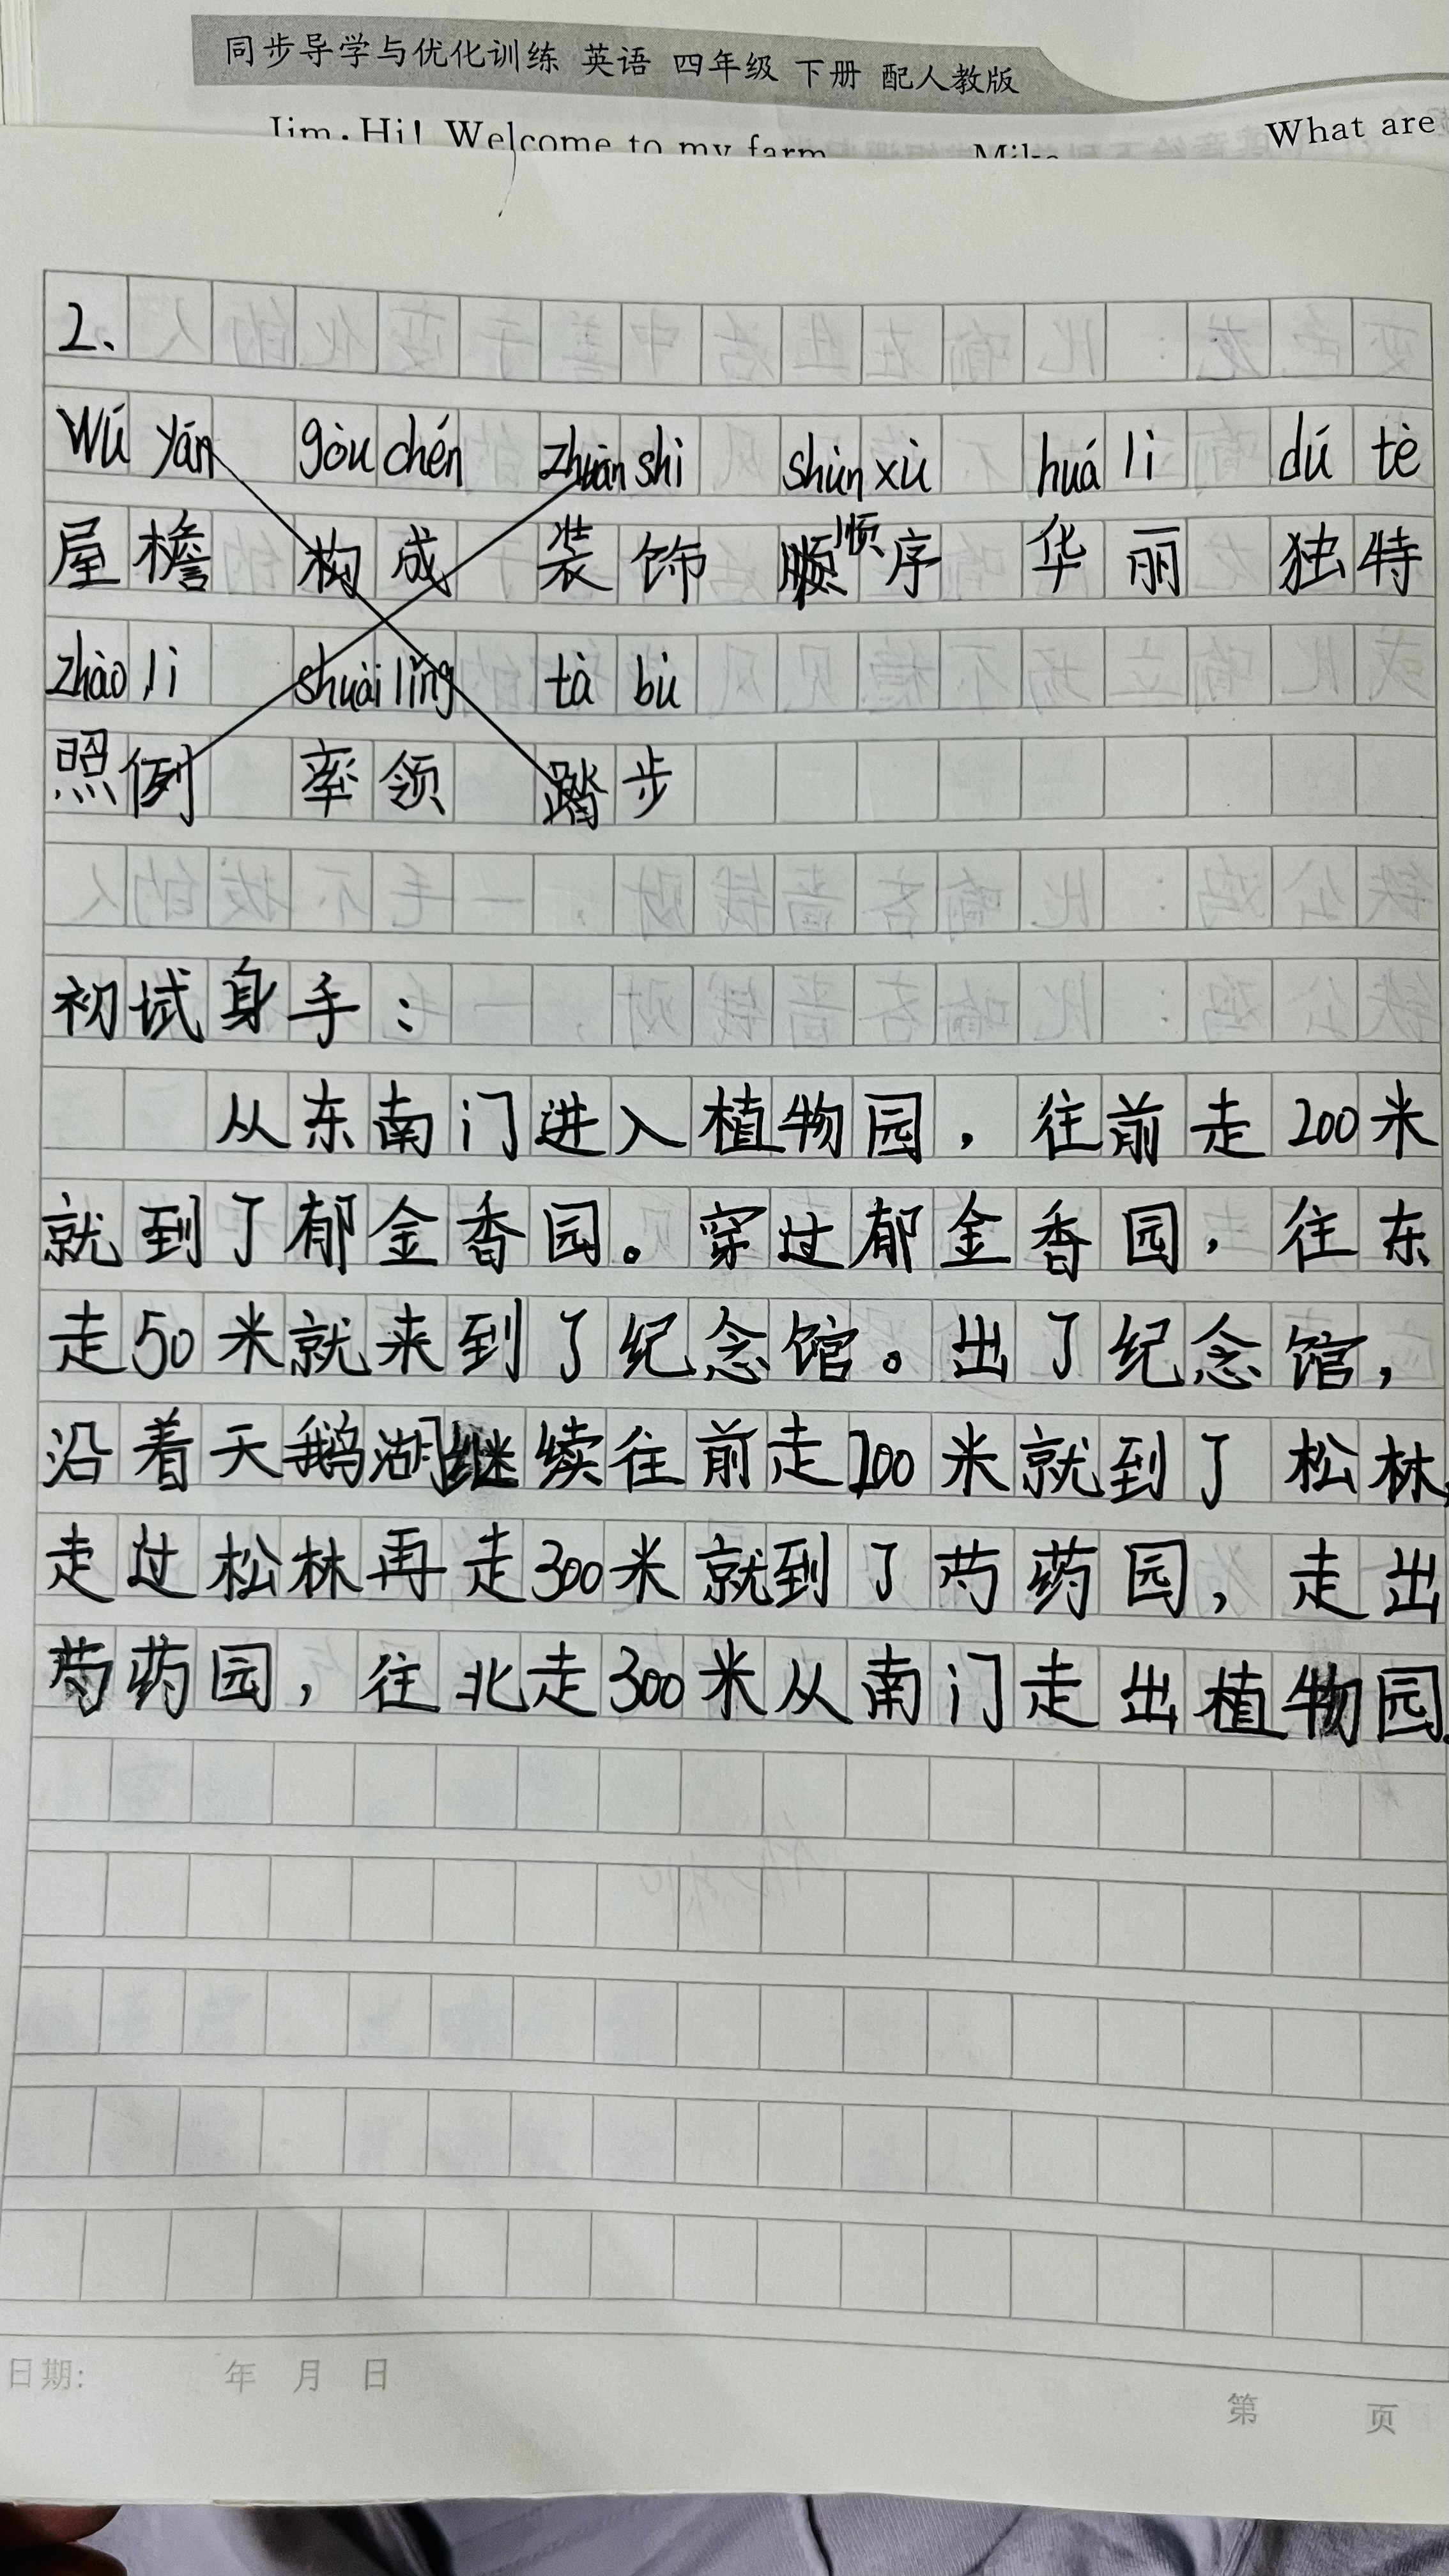 同步导学与优化训练 英语 四年级 下册 配人教版
Jim: Hi! Welcome to my farm
Mike
What are
2、
wú yán gòu chén zhuān shì shùn xù huá lì dú tè
屋檐 构成 装饰 顺序 华丽 独特
zhào lì shuài lǐng tà bù
照例 率领 踏步
初试身手：
从东南门进入植物园，往前走200米
就到了郁金香园。穿过郁金香园，往东
走50米就来到了纪念馆。出了纪念馆，
沿着天鹅湖继续往前走200米就到了松林，
走过松林再走300米就到了芍药园，走出
芍药园，往北走300米从南门走出植物园。
日期： 年 月 日
第 页